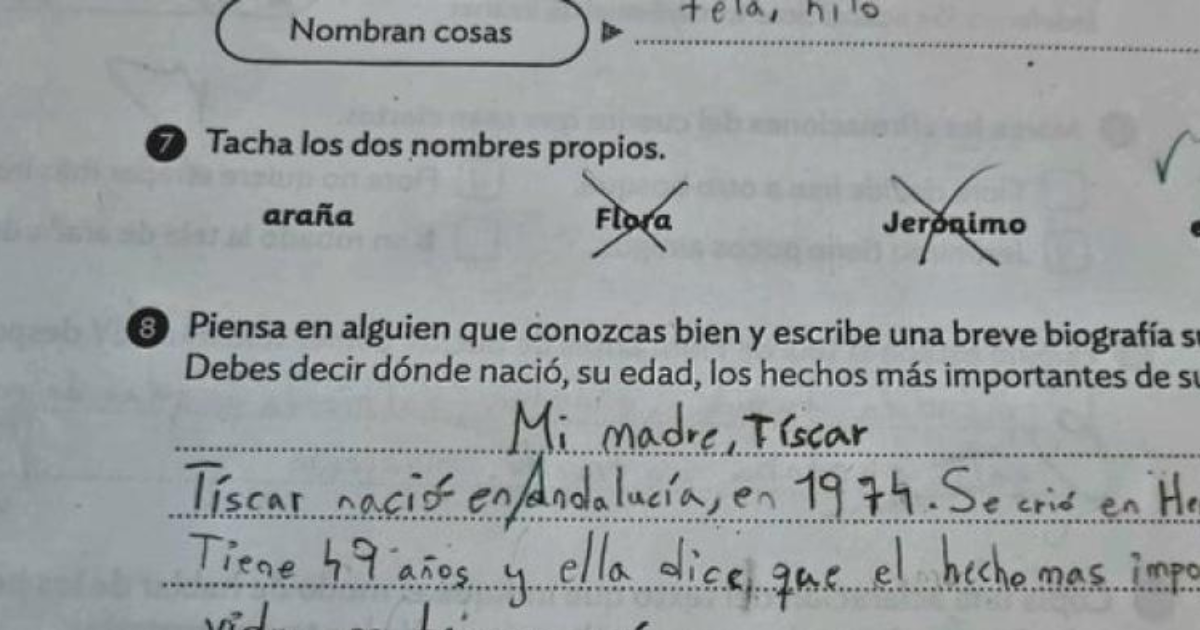 Nombran cosas tela, hilo
7 Tacha los dos nombres propios.
araña Flora Jerónimo
8 Piensa en alguien que conozcas bien y escribe una breve biografía
Debes decir dónde nació, su edad, los hechos más importantes de
Mi madre, Tíscar
Tíscar nació en Andalucía, en 1974. Se crió en
Tiene 49 años y ella dice que el hecho mas